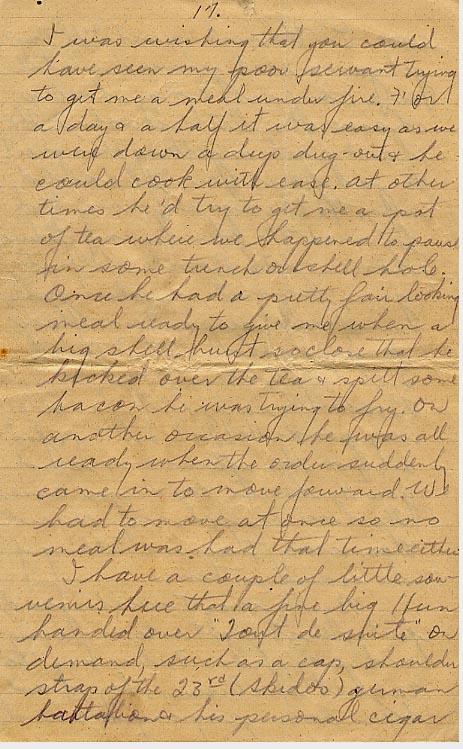 17.
I was wishing that you could
have seen my poor servant trying
to get me a meal under fire. For
a day & a half it was easy as we
were down a deep dug-out & he
could cook with ease. At other
times he'd try to get me a pot
of tea where we happened to pause
in some trench or shell hole.
Once he had a pretty fair looking
meal ready to give me when a
big shell burst so close that he
kicked over the tea & spilt some
bacon he was trying to fry. On
another occasion he was all
ready when the order suddenly
came in to move forward. We
had to move at once so no
meal was had that time either.
I have a couple of little sou-
venirs here that a fine big Hun
handed over "Tout de suite" on
demand, such as a cap, shoulder
strap of the 23rd (Skidoo) german
battalion & his personal cigar